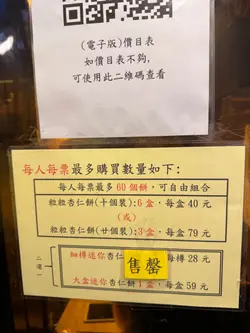 (電子版)價目表
如價目表不夠,
可使用此二維碼查看
每人每票最多購買數量如下:
每人每票最多 60 個餅,可自由組合
粒粒杏仁餅(十個裝):6 盒,每盒 40 元
(或)
粒粒杏仁餅(廿個裝):3 盒,每盒 79 元
二選一
細樽迷你杏仁
售罄
每樽 28 元
大盒迷你杏仁餅 1 盒,每盒 59 元